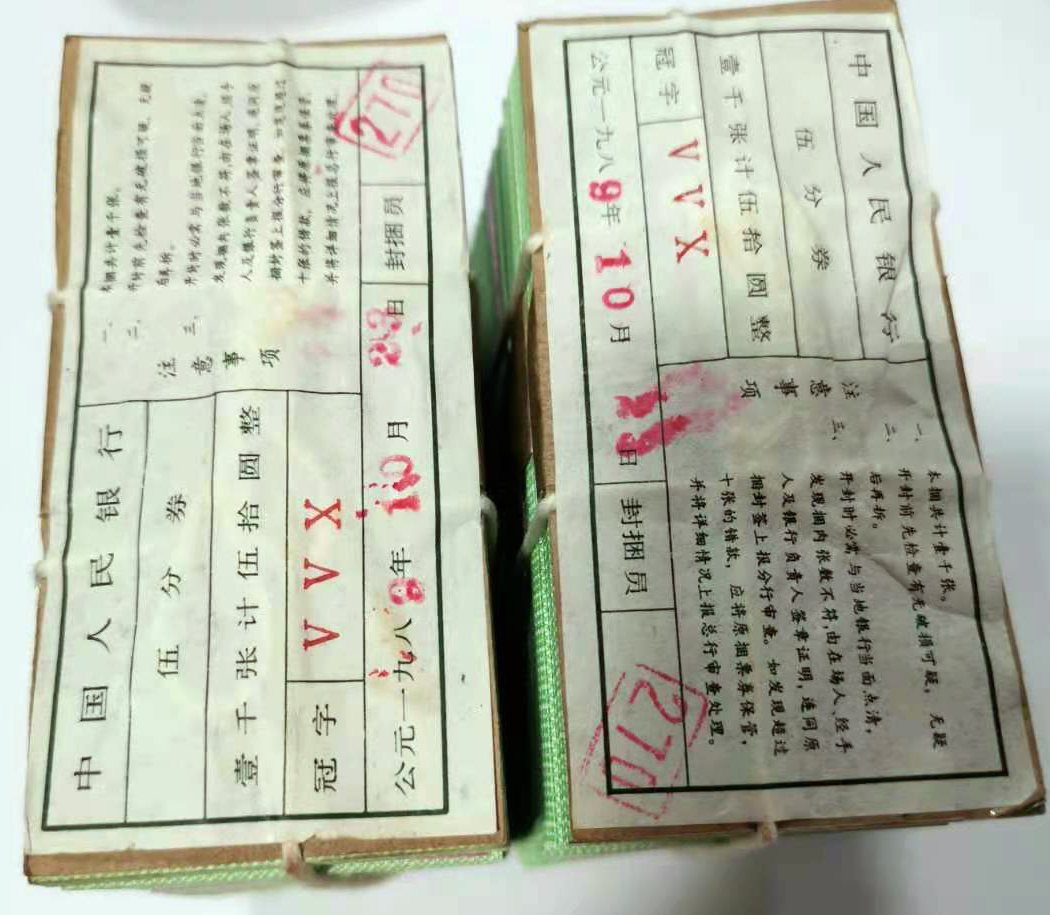 中国人民银行
伍分券
壹千张计伍拾圆整
冠字 VVX
公元一九八 年 10月 23日 封捆员 270
注意事项
一、本捆共计壹千张。
二、开封前先检查有无破损可疑，无疑
后再拆。
三、开封时必需与当地银行当面点清，
发现捆内张数不符，由在场人、经手
人及银行负责人签章证明，连同原
捆封签上报分行审查。如发现超过
十张的错款，应将原捆票券保管，
并将详细情况上报总行审查处理。
中国人民银行
伍分券
壹千张计伍拾圆整
冠字 VVX
公元一九八9年 10月 日 封捆员 270
注意事项
一、本捆共计壹千张。
二、开封前先检查有无破损可疑，无疑
后再拆。
三、开封时必需与当地银行当面点清，
发现捆内张数不符，由在场人、经手
人及银行负责人签章证明，连同原
捆封签上报分行审查。如发现超过
十张的错款，应将原捆票券保管，
并将详细情况上报总行审查处理。